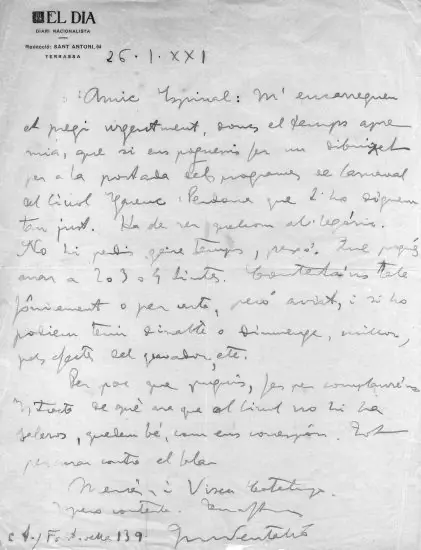 EL DIA
DIARI NACIONALISTA
Redacció: SANT ANTONI, 54
TERRASSA
26·I·XXI
Amic Espinal: M'encarreguen
et pregi urgentment, doncs el temps apre
mia, que si ens poguessis fer un dibuixet
per a la portada dels programes de Carnaval
del Círcol Egarenc. Perdona que t'ho diguem
tan just. Ha de ser quelcom al·legòric.
No hi perdis gaire temps, però. Que pugui
anar a 2 o 3 o 4 tintes. Contesta'ns tele
fònicament o per carta, però aviat, i si ho
podíem tenir dissabte o diumenge, millor,
pels efectes del gravador, etc.
Per poc que puguis, fes per complaure'ns
de què ara que al Círcol no hi ha
quedem bé, com ens correspon. Tot
contra el
Mercès, i Visca Catalunya.
139